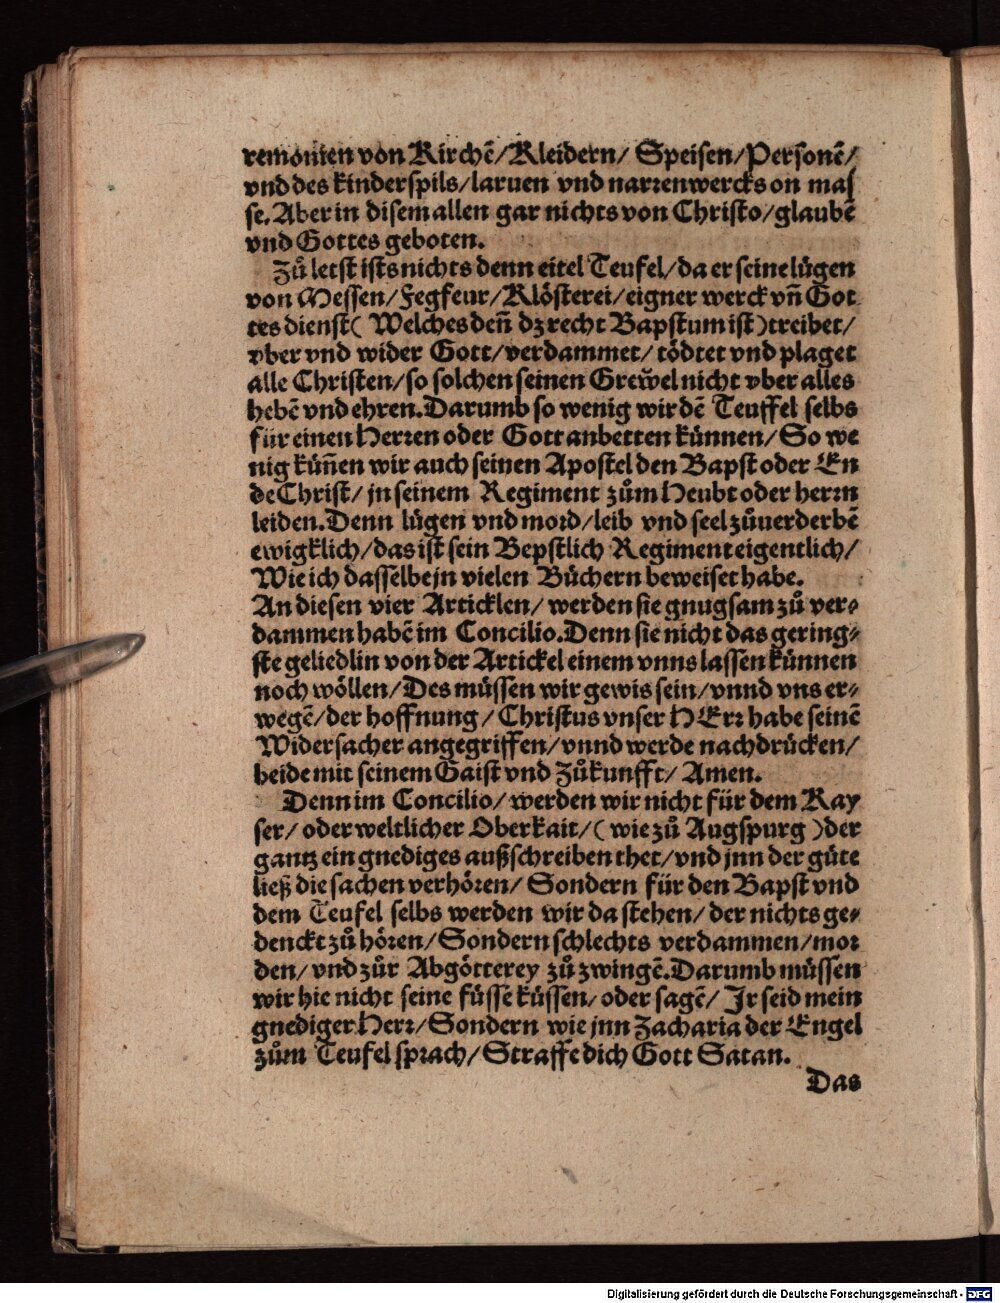 remonien von Kirchē/Kleidern/ Speisen/Personē/
vnd des kinderspils/laruen vnd narrenwercks on mas
se. Aber in disem allen gar nichts von Christo/glaubē
vnd Gottes geboten.
Zů letst ists nichts denn eitel Teufel/da er seine lügen
von Messen/Fegfeur/Klösterei/eigner werck vn̄ Got
tes dienst( Welches den̄ dz recht Bapstum ist )treibet/
vber vnd wider Gott/verdammet/ tödtet vnd plaget
alle Christen/so solchen seinen Grewel nicht vber alles
hebē vnd ehren. Darumb so wenig wir dē Teuffel selbs
für einen Herren oder Gott anbetten künnen/So we
nig kün̄en wir auch seinen Apostel den Bapst oder En
de Christ/ jn seinem Regiment zům Heubt oder herrn
leiden. Denn lügen vnd mord/leib vnd seel zůuerderbē
ewigklich/das ist sein Bepstlich Regiment eigentlich/
Wie ich dasselbe jn vielen Büchern beweiset habe.
An diesen vier Articklen/ werden sie gnugsam zů ver-
dammen habē im Concilio. Denn sie nicht das gering-
ste geliedlin von der Artickel einem vnns lassen künnen
noch wöllen/Des müssen wir gewis sein/vnnd vns er-
wegē/der hoffnung/ Christus vnser HErr habe seinē
Widersacher angegriffen/vnnd werde nachdrücken/
beide mit seinem Gaist vnd Zůkunfft/ Amen.
Denn im Concilio/werden wir nicht für dem Kay
ser/ oder weltlicher Oberkait/( wie zů Augspurg )der
gantz ein gnediges außschreiben thet/vnd jnn der güte
ließ die sachen verhören/ Sondern für den Bapst vnd
dem Teufel selbs werden wir da stehen/ der nichts ge-
denckt zů hören/Sondern schlechts verdammen/mor
den/ vnd zůr Abgötterey zů zwingē. Darumb müssen
wir hie nicht seine füsse küssen/ oder sagē/ Jr seid mein
gnediger Herr/Sondern wie jnn Zacharia der Engel
zům Teufel sprach/Straffe dich Gott Satan.
Das
Digitalisierung gefördert durch die Deutsche Forschungsgemeinschaft - DFG